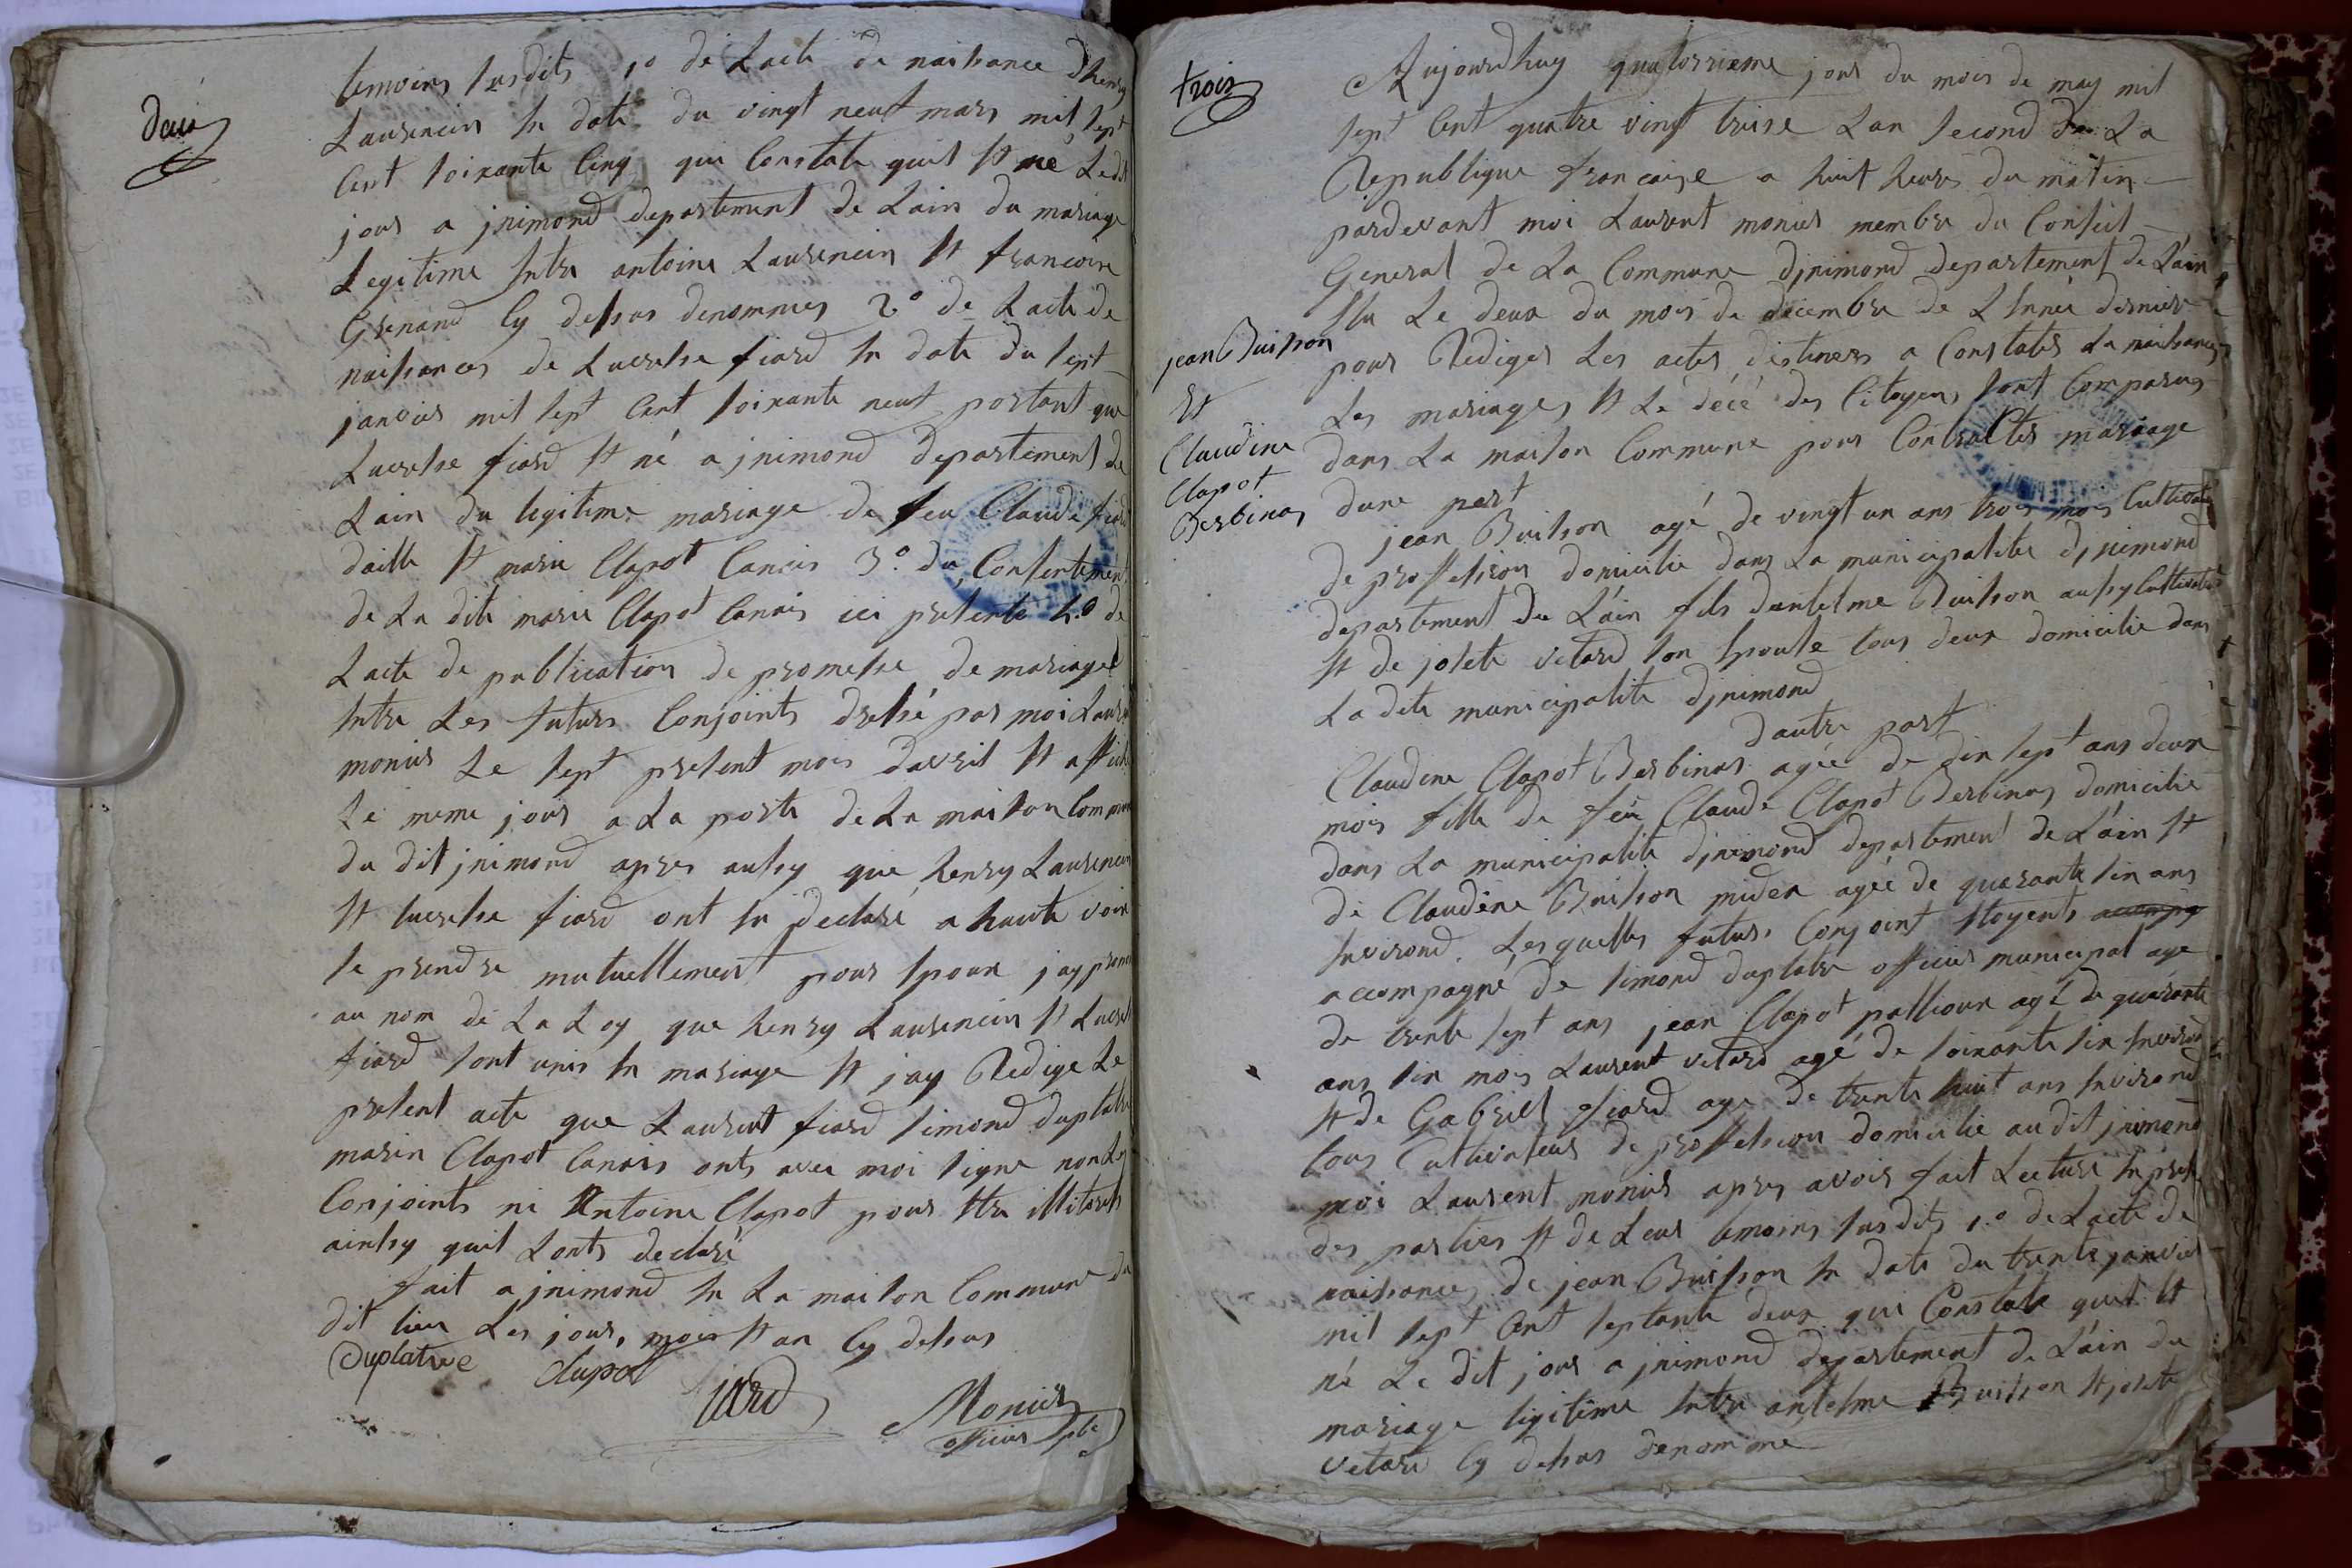 deux
temoins susdits 1º de Lacte de naissance dhenry
Laurencin En date du vingt neuf mars mil sept
Cent soixante Cinq qui Constate quil Et né Ledit
jour a jnimond departement de Lain du mariage
Legitime Entre antoine Laurencin Et francoise
Grenand Cy dessus denommes 2º de Lacte de
naissances de Lucresse fiard En date du sept
janvier mil sept Cent soixante neuf portant que
Lucresse fiard Et né a jnimond departement de
Lain du legitime mariage de feu Claude fiard
daille Et marie Clapot Canais 3º. du Consentement
de La dite marie Clapot Canais ici presente 4.º de
Lacte de publication de promesse de mariage
Entre Les futurs Conjoints dressé par moi Laurent
monier Le sept present mois davril Et affiché
Le meme jour a La porte de La maison Commune
du dit jnimond apres aussy que henry Laurencin
Et lucresse fiard ont En declaré a haute voix
se prendre mutuellement pour Epoux jay prononcé
au nom de La Loy que henry Laurencin Et Lucresse
fiard sont unis En mariage Et jay Redige Le
present acte que Laurent fiard simond duplatre
marin Clapot Canais onts avec moi signe non Les
Conjoints ni Antoine Clapot pour Etre illiterets
ainsy quil Lonts declaré
fait a jnimond En La maison Commune du
dit lieu Les jour, mois Et an Cy dessus
Duplatre Clapot fiard Monier
officier pbc
trois
Aujourdhuy quatorzieme jour du mois de may mil
sept Cent quatre vingt treise Lan second de La
Republique francaise a huit heures du matin
pardevant moi Laurent monier membre du Conseil
General de La Commune djnimond departement de Lain
Elu Le deux du mois de decembre de L'année dernier
pour Rediger Les actes destines a Constater La naissances
Les mariages Et Le décé des Citoyens sont Comparus
dans La maison Commune pour Contracter mariage
jean Buisson
Et
Claudine
Clapot
Berbinos
dune part
jean Buisson agé de vingt un ans trois mois Cultivateur
de proffession domicilie dans La municipalite djnimond
departement de Lain fils dantelme Buisson aussy Cultivateur
Et de josete vetard son Epouse tous deux domicilie dans
La dite municipalite djnimond
dautre part
Claudine Clapot Berbinos agée de dix sept ans deux
mois fille de feu Claude Clapot Berbinos domicilie
dans La municipalite djnimond departement de Lain Et
de Claudine Buisson midex agée de quarante six ans
Environd. Lesquelles futurs Conjoint Etoyents accompg
accompagné de simond duplatre officier municipal age
de trente sept ans jean Clapot pallioux agé de quarante
ans six mois Laurent vetard agé de soixante six Environd
Et de Gabriel fiard age de trente huit ans Environd
tous Cultivateurs de proffession domicilie au dit jnimond
moi Laurent monier apres avoir fait Lecture En presence
des parties Et de Leur temoins susdits 1.º de Lacte de
naissances de jean Buisson En date du trente janvier
mil sept Cent septante deux qui Constate quil Et
né Le dit jour a jnimond departement de Lain du
mariage legitime Entre antelme Buisson Et josete
vetard Cy dessus denomme